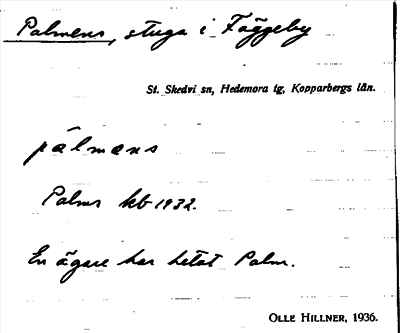 Palmens, stuga i Fäggeby
St. Skedvi sn, Hedemora tg, Kopparbergs län.
pálmens
Palms kb 1932.
En ägare har hetat Palm.
OLLE HILLNER, 1936.